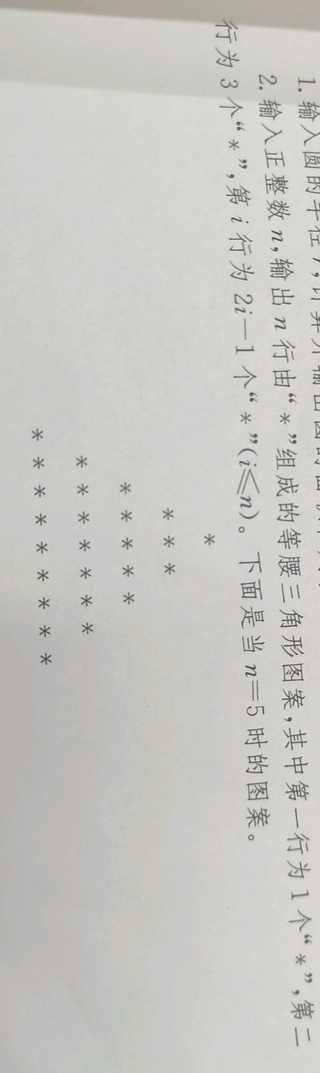 1. 输入圆的半径r,计算并输出圆的面积
2. 输入正整数n,输出n行由“*”组成的等腰三角形图案,其中第一行为1个“*”,第二
行为3个“*”,第i行为2i-1个“*”(i≤n)。下面是当n=5时的图案。
*
* * *
* * * * *
* * * * * * *
* * * * * * * * *